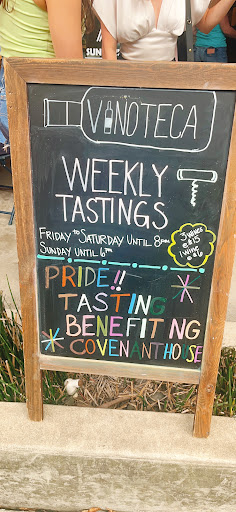 VINOTECA
WEEKLY
TASTINGS
FRIDAY to SATURDAY UNTIL 8pm
SUNDAY UNTIL 6pm
3 WINES
@ $15
1 WINE
@ $6
PRIDE!!
TASTING
BENEFITING
COVENANT HOUSE